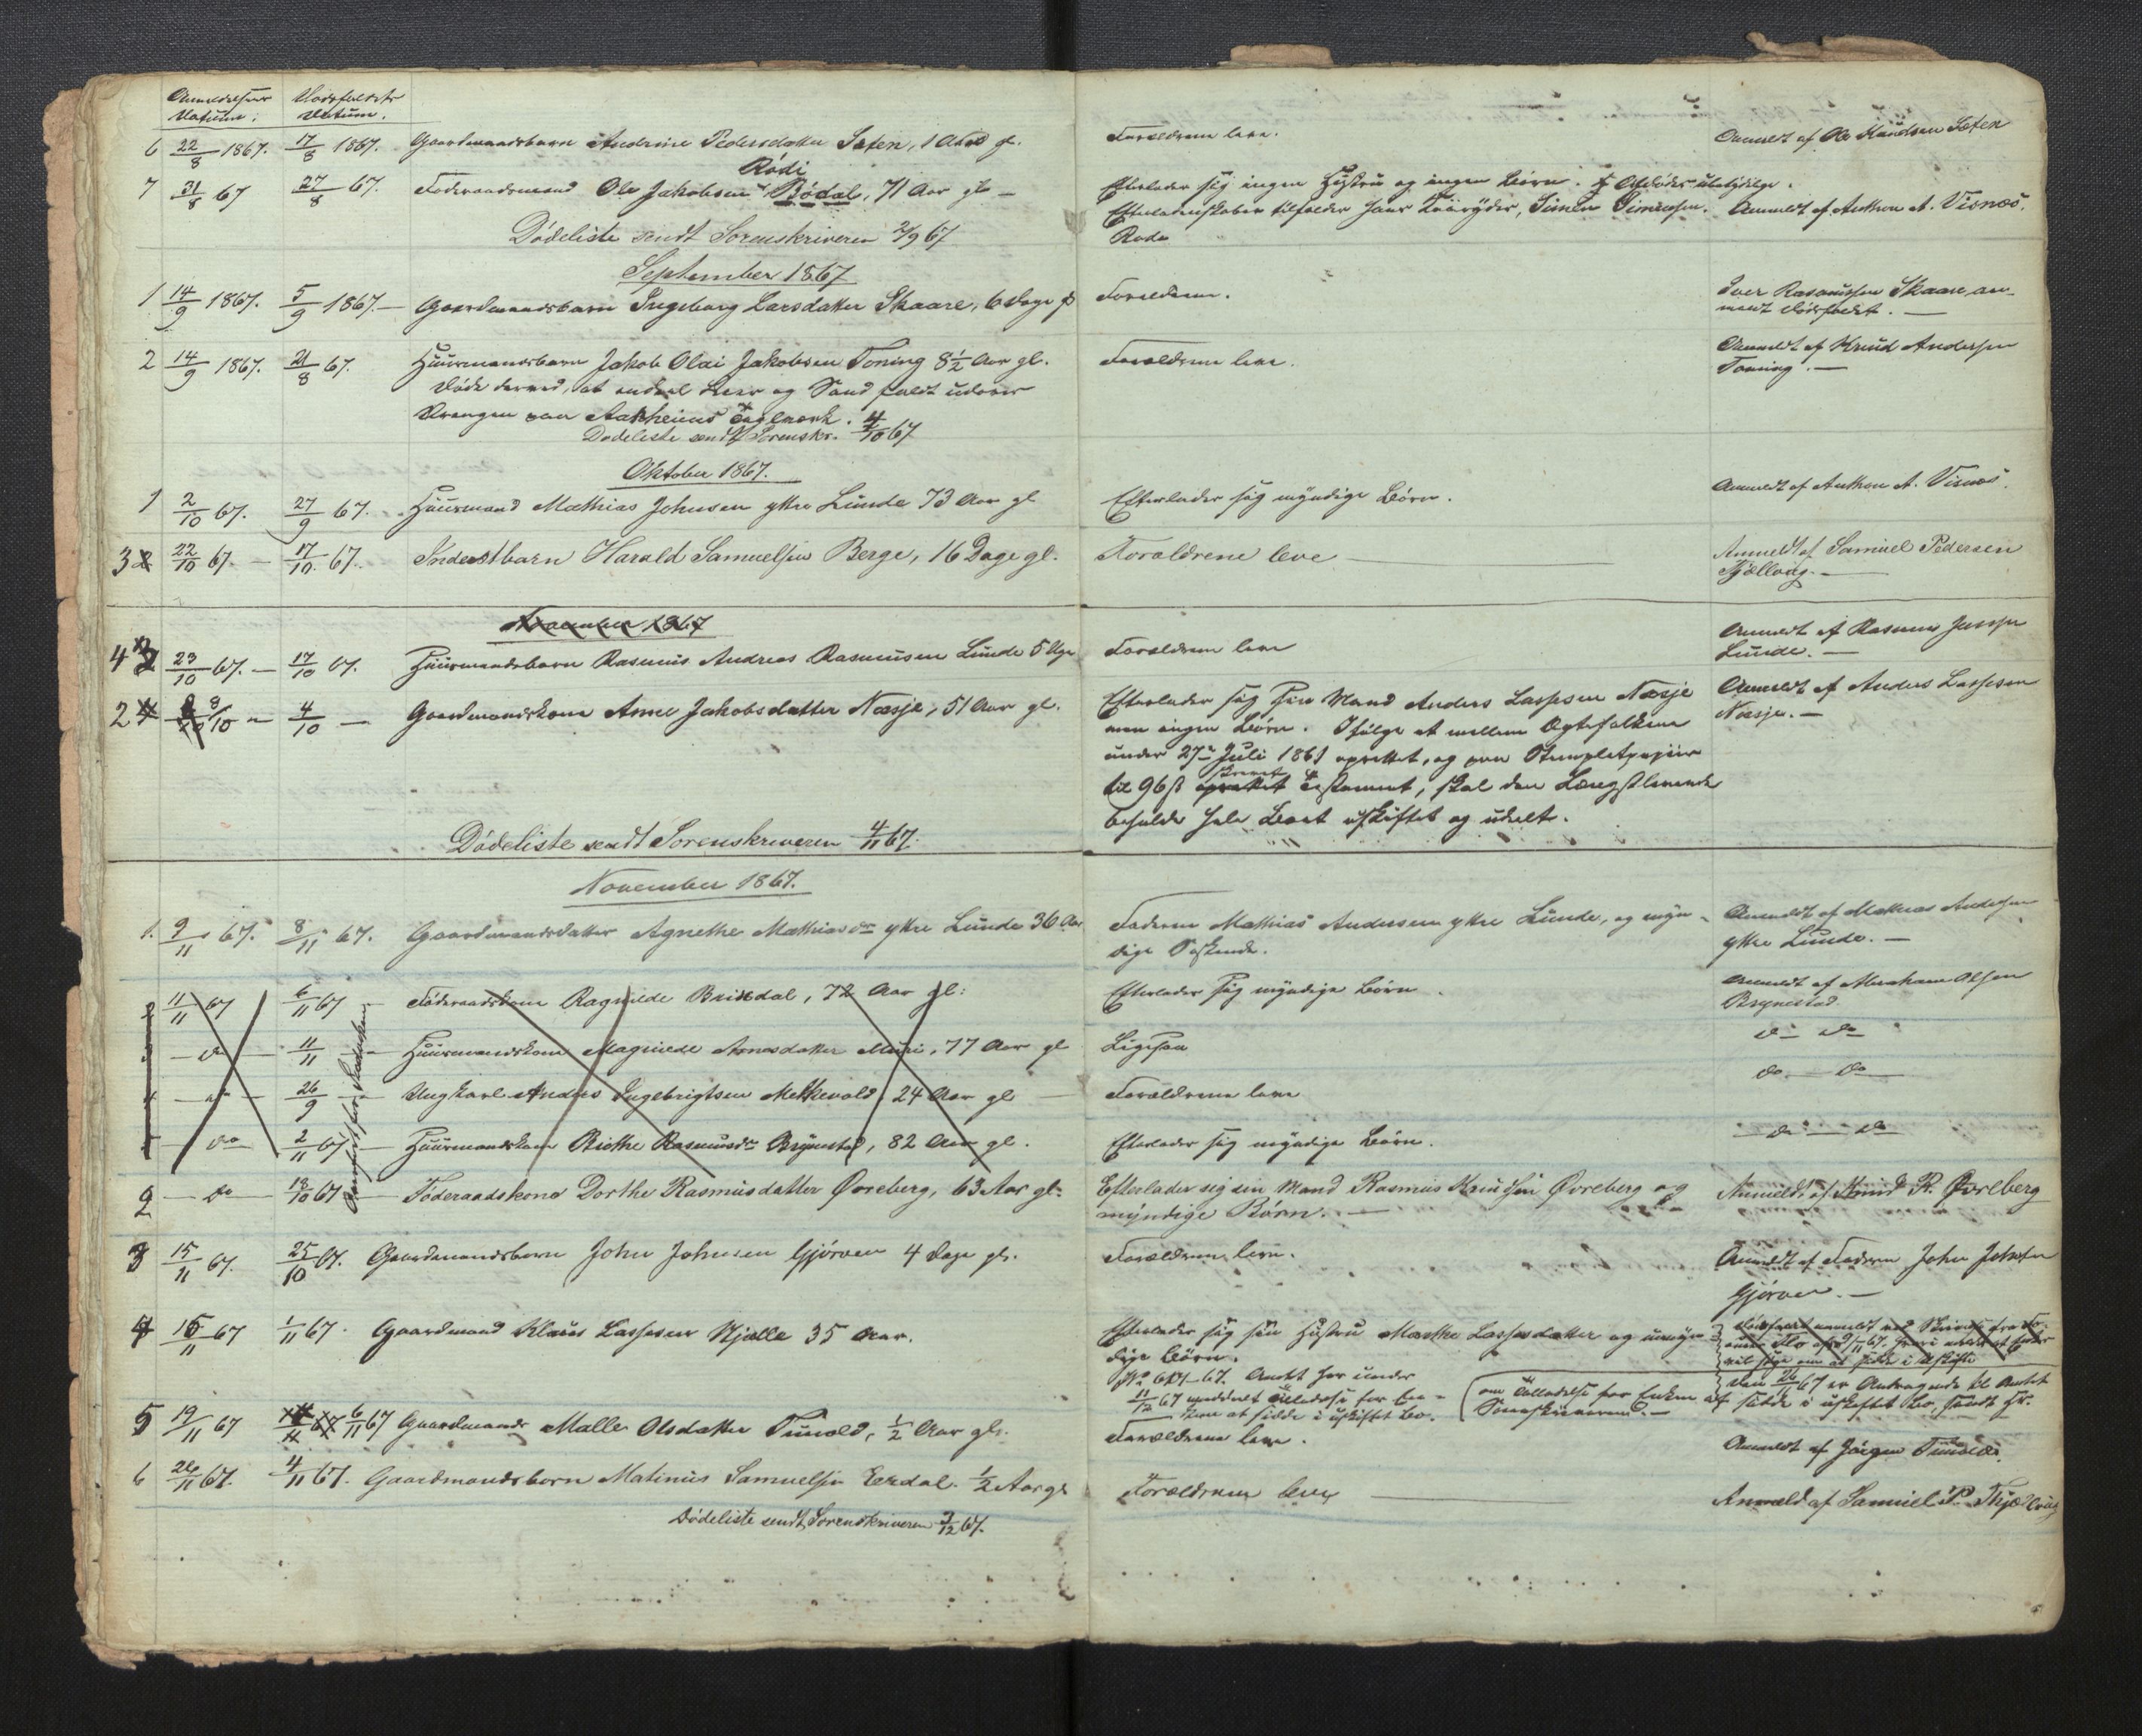 Anmeldelsens Datum. Dødsfaldets Datum.
6 22/8 1867. 17/8 1867. Gaardmandsbarn Andrine Pedersdatter Sæten, 1 Aar gl. Forældrene leve. Anmeldt af Ole Knudsen Sæten
Rødi
7 31/8 67 27/8 67. Foderaadsmand Ole Jakobsen Bødal, 71 Aar gl. Efterlader sig ingen Hustru og ingen Børn.
Efterladenskaber tilfalder hans Simen Simensen. Anmeldt af Anthon A. Visnæs.
Dødeliste sendt Sorenskriveren 2/9 67
September 1867
1 14/9 1867. 5/9 1867. Gaardmandsbarn Ingeborg Larsdatter Skaare, 6 Dage gl Forældrene. Iver Rasmussen Skaare an-
meldt Dødsfaldet.
2 14/9 1867. 21/8 67. Huusmandsbarn Jakob Olai Jakobsen Toning 8 1/2 Aar gl. Forældrene leve. Anmeldt af Knud Andersen
Toning.
Døde derved, at endeel Leer og Sand faldt udover
Drengen paa Aahheims Teglværk.
Dødeliste sendt Sorenskr. 4/10 67
Oktober 1867.
1 2/10 67. 27/9 67. Huusmand Mathias Johnsen ytre Lunde 73 Aar gl Efterlader sig myndige Børn. Anmeldt af Anthon A. Visnæs.
3 22/10 67. 17/10 67. Inderstbarn Harald Samuelsen Berge, 16 Dage gl. Forældrene leve Anmeldt af Samuel Pedersen
Tjællaug.
November 1867
4 23/10 67. 17/10 67. Huusmandsbarn Rasmus Andreas Rasmusen Lunde 5 Uger Forældrene leve Anmeldt af Rasmus Jensen
Lunde.
2 8/10 4/10 Gaardmandskone Anne Jakobsdatter Næsje, 51 Aar gl. Efterlader sig sin Mand Anders Lassesen Næsje Anmeldt af Anders Lassesen
Næsje.
men ingen Børn. Ifølge et mellem Ægtefolkene
under 27de Juli 1861 oprettet, og paa Stemplet papiir
skrevet
til 96 ß oprettet Testament, skal den Længstlevende
beholde hele Boet uskiftet og udelt.
Dødeliste sendt Sorenskriveren 4/11 67.
November 1867.
1. 9/11 67. 8/11 67. Gaardmandsdatter Agnethe Mathiasdr ytre Lunde 36 Aar Faderen Mathias Andersen ytre Lunde, og myn- Anmeldt af Mathias Andersen
dige Søskende. ytre Lunde.
2 11/11 67 6/11 67 Føderaadskone Ragnilde Brixdal, 72 Aar gl: Efterlader sig myndige Børn. Anmeldt af Abraham Olsen
Brynestad.
3 do 11/11 Huusmandskone Magnilde Arnesdatter Muri, 77 Aar gl Ligesaa do do
4 do 26/9 Ungkarl Anders Ingebrigtsen Melkevold 24 Aar gl Forældrene leve do do
5 do 2/11 67 Huusmandskone Birthe Rasmusdr Brynestad, 82 Aar gl. Efterlader sig myndige Børn. do do
2 do 18/10 67 Føderaadskone Dorthe Rasmusdatter Øvreberg, 63 Aar gl. Efterlader sig sin Mand Rasmus Knudsen Øvreberg og Anmeldt af Knud R. Øvreberg
myndige Børn.
3 15/11 67. 25/10 67. Gaardmandsbarn John Johnsen Gjørven 4 Dage gl. Forældrene leve. Anmeldt af Faderen John Johnsen
Gjørven.
4 15/11 67 1/11 67. Gaardmand Klaus Lassesen Hjelle 35 Aar. Efterlader sig sin Hustru Marthe Lassesdatter og umyn-
dige Børn.
11/12 67 meddeelt Tilladelse for En-
ken at sidde i uskiftet Bo.
om Tilladelse for Enken at sidde i uskiftet Bo, sendt Hr.
Sorenskriveren.
5 19/11 67 6/11 67 Gaardmands Malle Olsdatter Tunold, 1/2 Aar gl. Forældrene leve. Anmeldt af Jørgen Tunold.
6 26/11 67. 4/11 67. Gaardmandsbarn Matinus Samuelsen Eerdal. 1/2 Aar gl Forældrene leve Anmeld af Samuel P. Thjællaug
Dødeliste sendt Sorenskriveren 3/12 67.